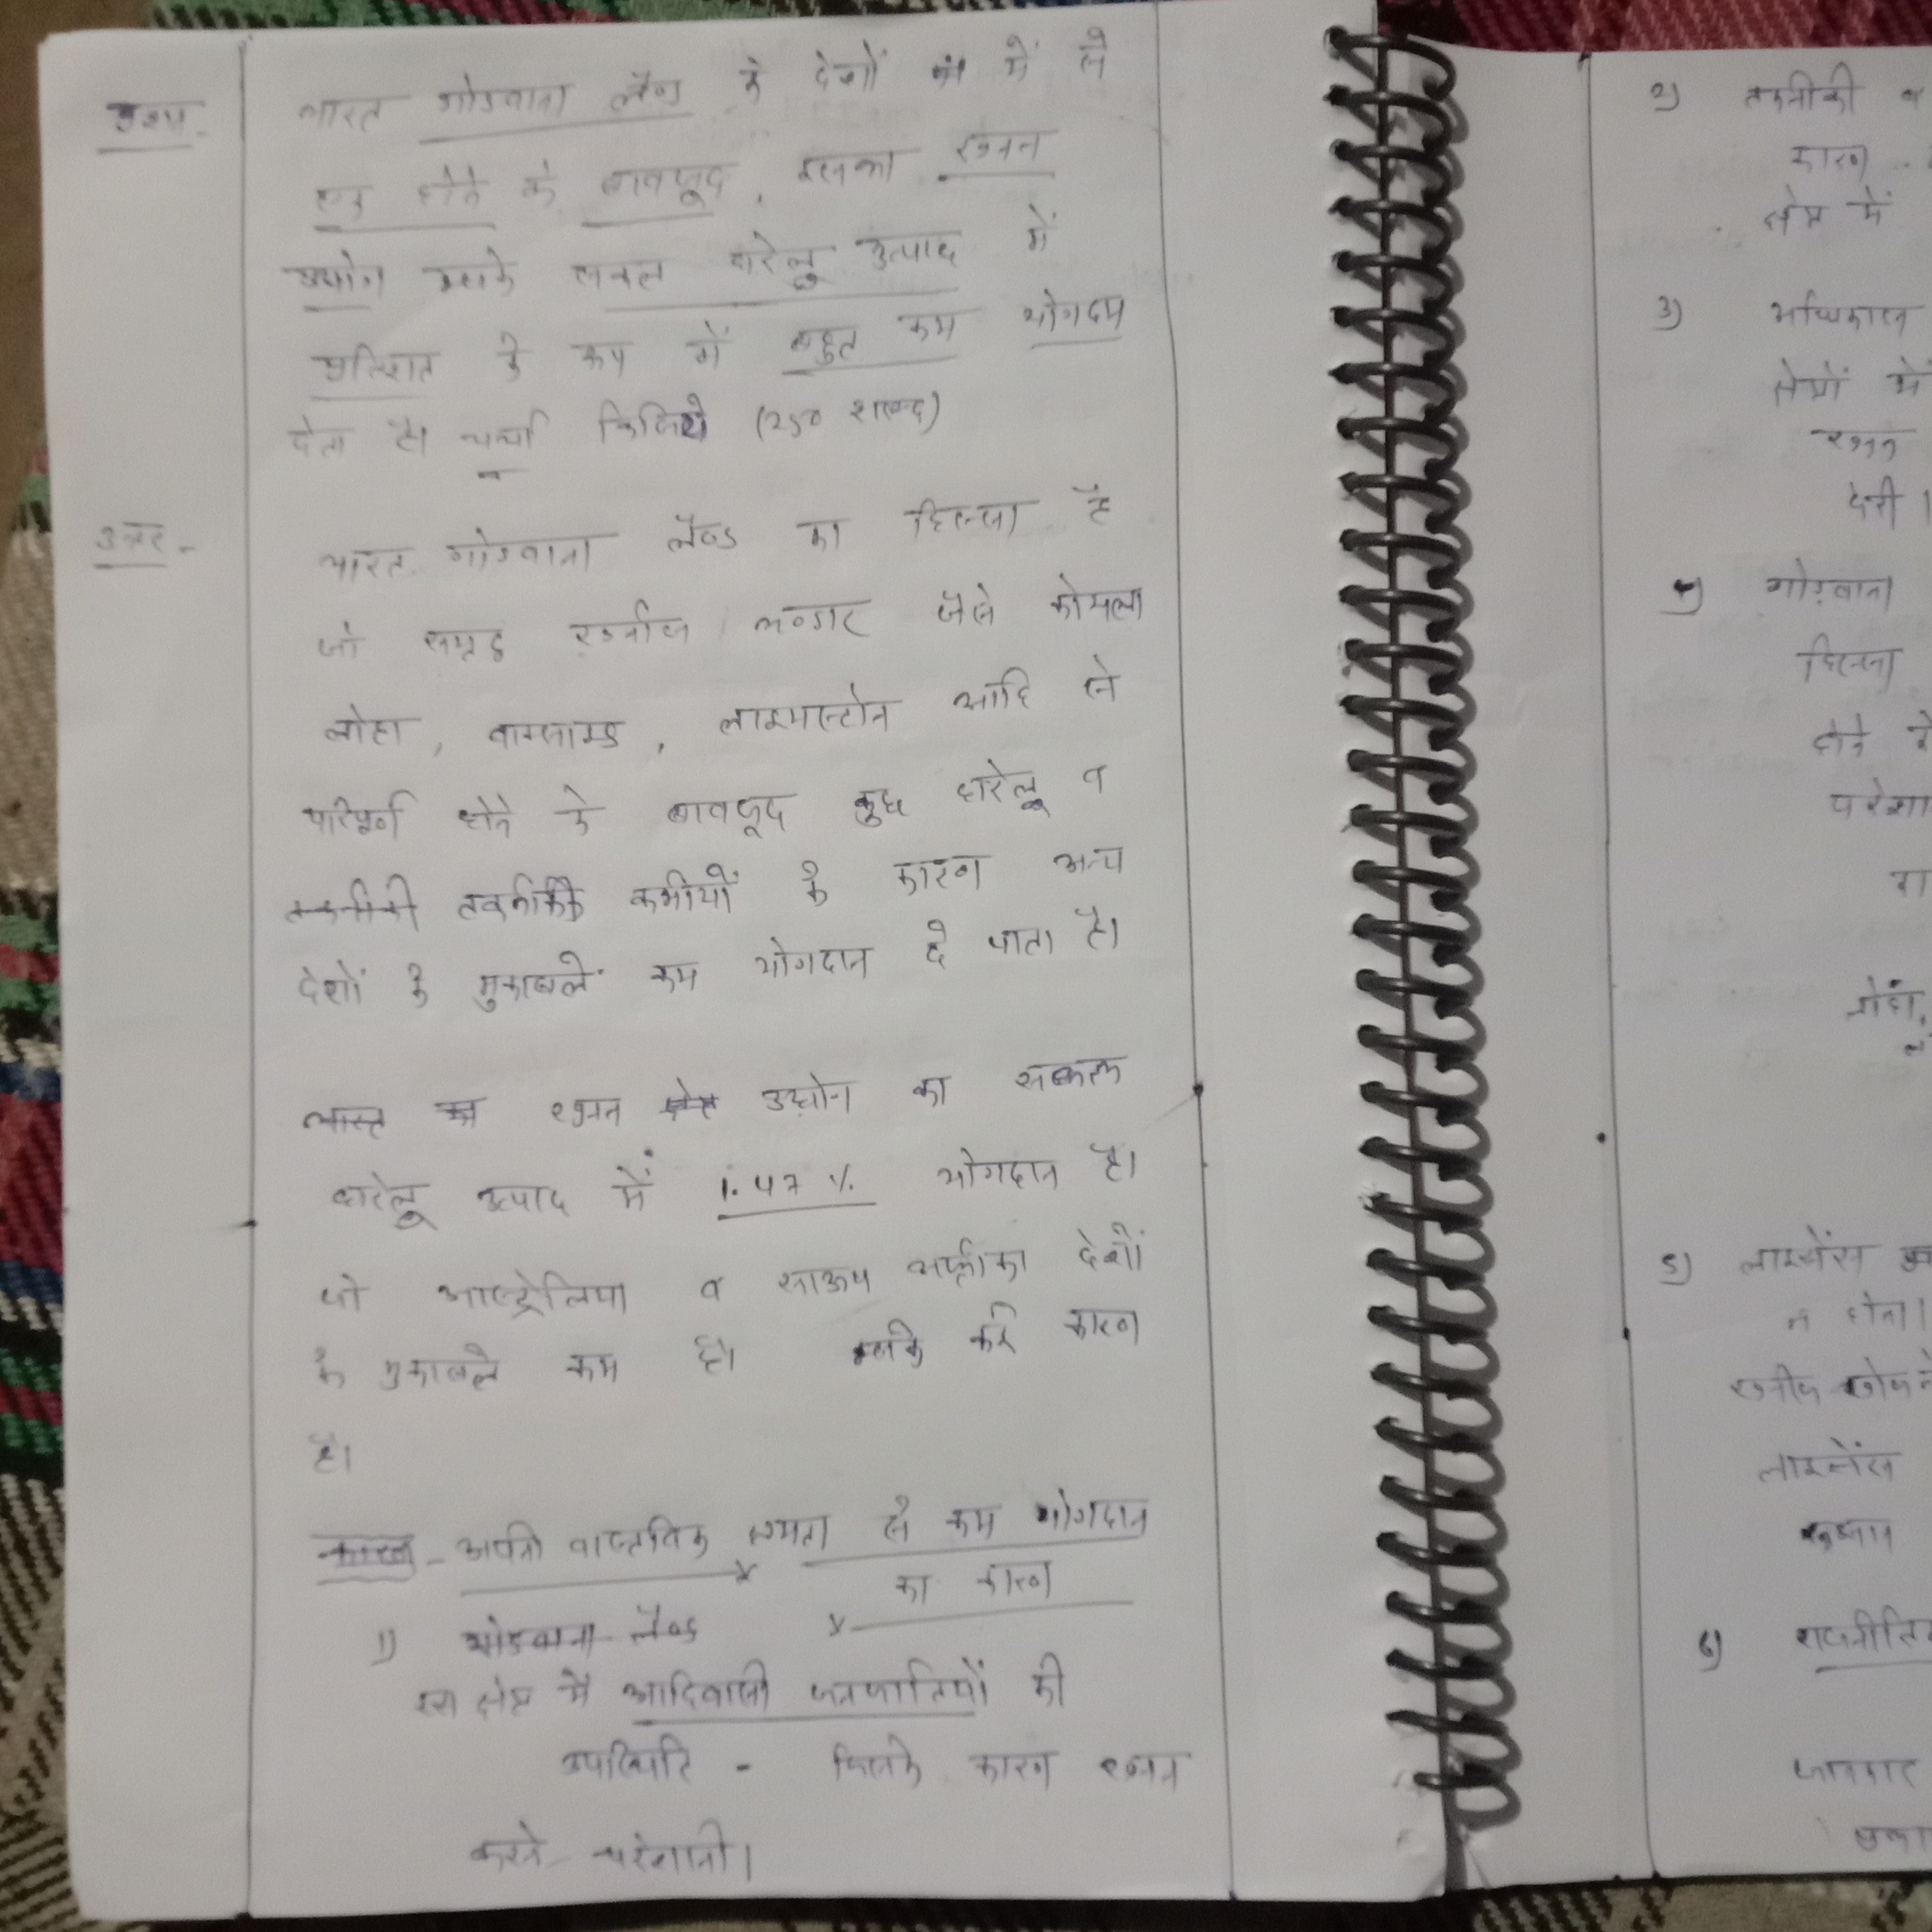 प्रश्न - भारत गोंडवाना लैण्ड के देशों में से
एक होने के बावजूद, इसका खनन
उद्योग इसके सकल घरेलू उत्पाद में
प्रतिशत के रूप में बहुत कम योगदान
देता है। चर्चा किजिये (250 शब्द)
उत्तर - भारत गोंडवाना लैण्ड का हिस्सा है
जो समृद्ध खनीज भण्डार जैसे कोयला
लोहा, बाक्साइड, लाइमस्टोन आदि से
परिपूर्ण होने के बावजूद कुछ घरेलू व
तकनीकी कमीयों के कारण अन्य
देशों के मुकाबले कम योगदान दे पाता है।
भारत खनन उद्योग का सकल
घरेलू उत्पाद में 1.47 % योगदान है।
जो आस्ट्रेलिया व साऊथ अफ्रीका देशों
के मुकाबले कम है। इसके कई कारण
है।
कारण - अपनी वास्तविक क्षमता से कम योगदान
का कारण
1) गोडवाना लैण्ड
इस क्षेत्र में आदिवासी जनजातियों की
उपस्थिति - जिसके कारण खनन
करने परेशानी।
2) तकनीकी व
कारण
क्षेत्र में
3) अधिकांश
क्षेत्रों में
खनन
देती।
4) गोडवाना
हिस्सा
होने से
परेशा
5) लाइसेंस
न होना।
खनीज खोजने
लाइसेंस
6) राजनीति